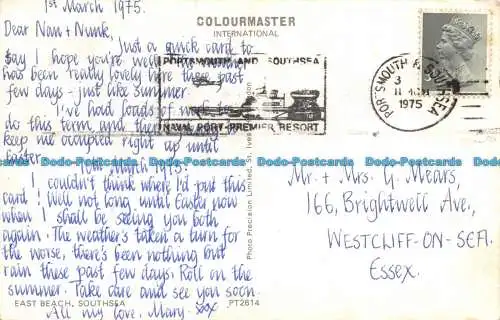 1st March 1975.
Dear Nan + Nunk,
Just a quick card to
say I hope you're well. The weather
has been really lovely here these past
few days - just like Summer.
I've had loads of work to
do this term, and
keep me occupied right up until
Easter.
10th March 1975.
I couldn't think where I'd put this
card! Well not long until Easter now
when I shall be seeing you both
again. The weather's taken a turn for
the worse, there's been nothing but
rain these past few days. Roll on the
summer. Take care and see you soon.
All my love, Mary. xxx
EAST BEACH, SOUTHSEA
PT2614
COLOURMASTER
INTERNATIONAL
Photo Precision Limited, St. Ives
PORTSMOUTH AND SOUTHSEA
NAVAL PORT-PREMIER RESORT
PORTSMOUTH & SOUTHSEA
1975
Mr. + Mrs. G. Mears,
166, Brightwell Ave.,
WESTCLIFF-ON-SEA.
Essex.
Dodo-Postcards Dodo-Postcards Dodo-Postcards Dodo-Postcards Dodo-Postcards